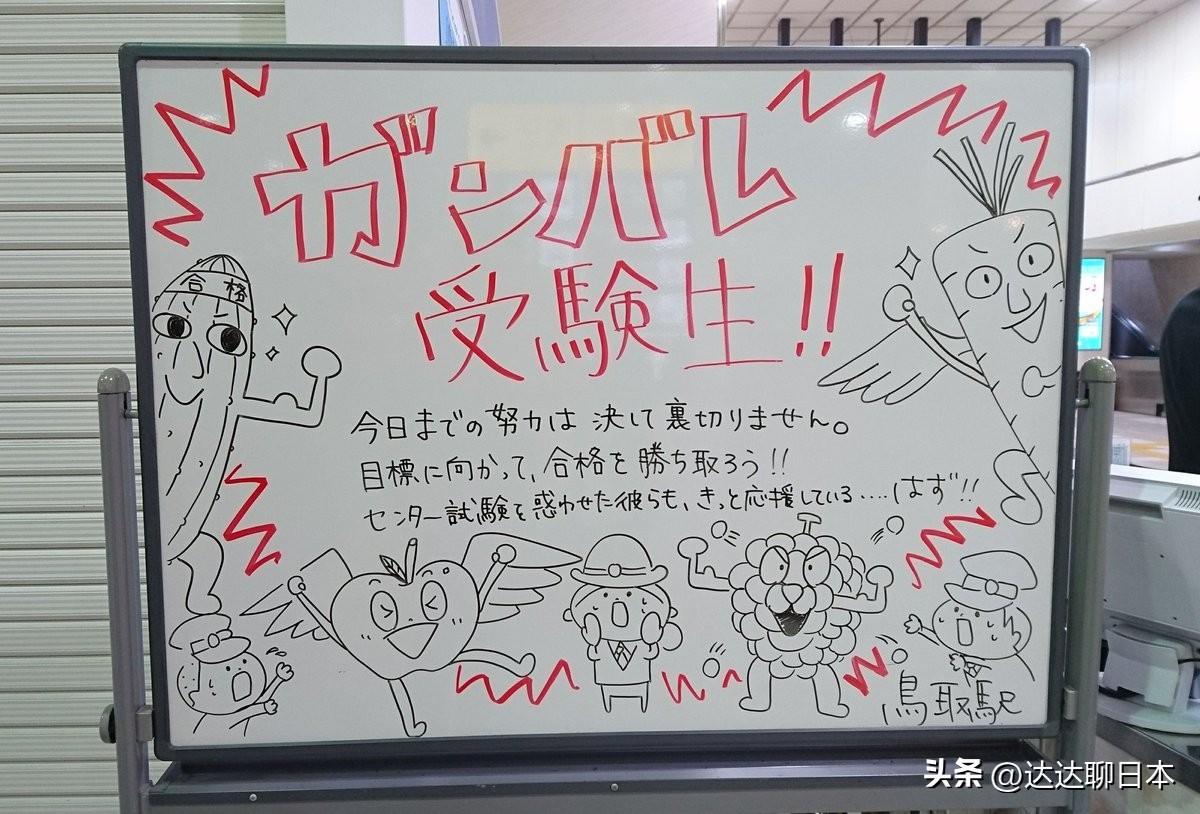 ガンバレ
受験生!!
合格
今日までの努力は 決して裏切りません。
目標に向かって、合格を勝ち取ろう!!
センター試験を惑わせた彼らも、きっと応援している....はず!!
鳥取駅
头条 @达达聊日本